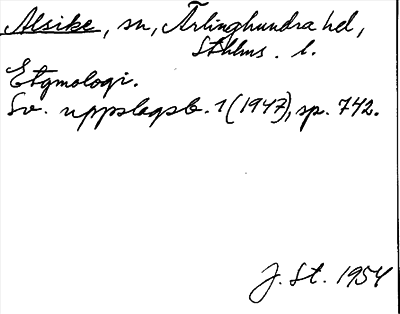 Alsike, sn, Ärlinghundra hd,
Sthlms. l.
Etymologi.
Sv. uppslagsb. 1 (1947), sp. 742.
J. St. 1954